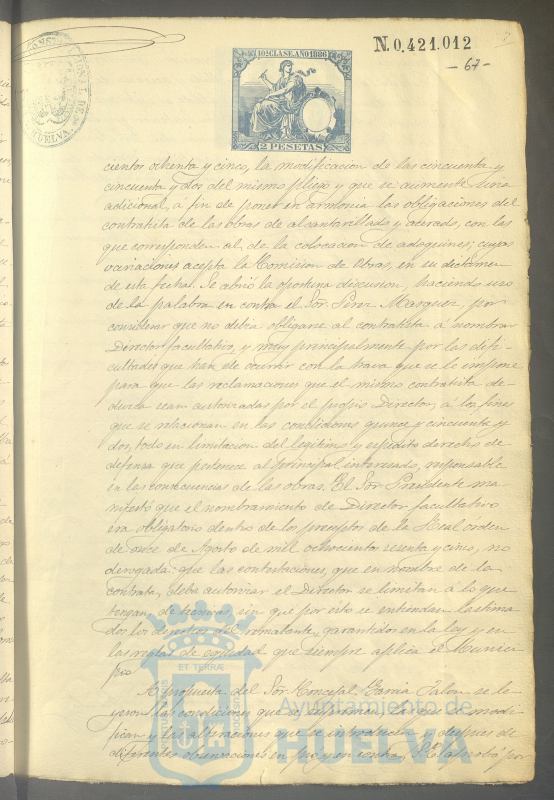 N.0,421.012
- 67 -
10ª CLASE. AÑO 1886
2 PESETAS
HUELVA
cientos ochenta y cinco, la modificacion de las cincuenta y
cincuenta y dos del mismo pliego y que se aumente una
adicional, á fin de poner en armonia las obligaciones del
contratista de las obras de alcantarillado y acerado, con las
que corresponden al de la colocacion de adoquines; cuyas
variaciones acepta la Comision de Obras, en su dictámen
de esta fecha. Se abrió la oportuna discusion, haciendo uso
de la palabra en contra el Sor. Perez Marquez, por
considerar que no debia obligarse al contratista á nombrar
Director facultativo, y muy principalmente por las difi-
cultades que han de ocurrir con la trava que se le impone
para que las reclamaciones que el mismo contratista de-
duzca sean autorizadas por el propio Director, á los fines
que se relacionan en las condiciones quince y cincuenta y
dos, todo en limitacion del legitimo y espedito derecho de
defensa que pertenece al principal interesado, responsable
en las consecuencias de las obras. El Sor. Presidente ma-
nifestó que el nombramiento de Director facultativo
era obligatorio dentro de los preceptos de la Real orden
de once de Agosto de mil ochocientos sesenta y cinco, no
derogada: que las contestaciones, que en nombre de la
contrata, debe autorizar el Director se limitan á lo que
tengan de técnicas, sin que por esto se entiendan lastima
dos los derechos del rematante, garantidos en la ley y en
las reglas de equidad que siempre aplica el Munici
pio.
A propuesta del Sor. Concejal Garcia Jalon se le
yeron las condiciones que se suprimen, las que se modi-
fican y las alteraciones que se introducen y despues de
diferentes observaciones en pró y en contra, S. E. aprobó por
ET TERRÆ
Ayuntamiento de
HUELVA